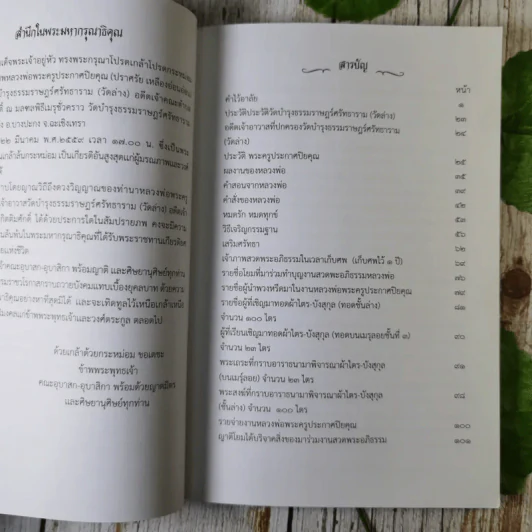 สำนึกในพระมหากรุณาธิคุณ
ด็จพระเจ้าอยู่หัว ทรงพระกรุณาโปรดเกล้าโปรดกระหม่อม
พหลวงพ่อพระครูประกาศปิยคุณ (ปราศรัย เหลืองอ่อน
บำรุงธรรมราษฎร์ศรัทธาราม (วัดล่าง) อดีตเจ้าคณะตำบล
ที่ ณ มลฑลพิธีเมรุชั่วคราว วัดบำรุงธรรมราษฎร์ศรัทธาราม
อ.บางปะกง จ.ฉะเชิงเทรา
๒๒ มีนาคม พ.ศ.๒๕๕๙ เวลา ๑๗.๐๐ น. ซึ่งเป็นพระ
เกล้าล้นกระหม่อม เป็นเกียรติอันสูงสุดแก่ผู้มรณภาพและวงศ์
าบโดยญาณวิถีถึงดวงวิญญาณของท่านาหลวงพ่อพระครู
วาสวัดบำรุงธรรมราษฎร์ศรัทธาราม (วัดล่าง) อดีตเจ้า
กิตติมศักดิ์ ได้ด้วยประการใดในสัมปรายภพ คงจะมีความ
นล้นพ้นในพระมหากรุณาธิคุณที่ได้รับพระราชทานเกียรติยศ
ยแห่งชีวิต
จ้าคณะอุบาสก-อุบาสิกา พร้อมญาติ และศิษยานุศิษย์ทุกท่าน
รมราชวโรกาสกราบถวายบังคมแทบเบื้องยุคลบาท ด้วยความ
ธิคุณอย่างหาที่สุดมิได้ และจะเทิดทูลไว้เหนือเกล้าเหนือ
มงคลแก่ข้าพระพุทธเจ้าและวงศ์ตระกูล ตลอดไป
ด้วยเกล้าด้วยกระหม่อม ขอเดชะ
ข้าพระพุทธเจ้า
คณะอุบาสก-อุบาสิกา พร้อมด้วยญาติมิตร
และศิษยานุศิษย์ทุกท่าน
สารบัญ
หน้า
คำไว้อาลัย ๑
ประวัติประวัติวัดบำรุงธรรมราษฎร์ศรัทธาราม (วัดล่าง) ๒๓
อดีตเจ้าอาวาสที่ปกครองวัดบำรุงธรรมราษฎร์ศรัทธาราม ๒๔
(วัดล่าง)
ประวัติ พระครูประกาศปิยคุณ ๒๕
ผลงานของหลวงพ่อ ๓๕
คำสอนจากหลวงพ่อ ๓๙
คำสั่งของหลวงพ่อ ๔๒
หมดรัก หมดทุกข์ ๕๓
วิธีเจริญกรรมฐาน ๕๖
เสริมศรัทธา ๖๒
เจ้าภาพสวดพระอภิธรรมในเวลาเก็บศพ (เก็บศพไว้ ๑ ปี) ๖๙
รายชื่อโยมที่มาร่วมทำบุญงานสวดพระอภิธรรมหลวงพ่อ ๗๖
รายชื่อผู้นำพวงหรีดมาในงานหลวงพ่อพระครูประกาศปิยคุณ ๘๘
รายชื่อผู้ที่เชิญมาทอดผ้าไตร-บังสุกุล (ทอดชั้นล่าง)
จำนวน ๑๐๐ ไตร
ผู้ที่เรียนเชิญมาทอดผ้าไตร-บังสุกุล (ทอดบนเมรุลอยชั้นที่ ๓) ๙๐
จำนวน ๒๓ ไตร
พระเถระที่กราบอาราธนามาพิจารณาผ้าไตร-บังสุกุล ๙๑
(บนเมรุลอย) จำนวน ๒๓ ไตร
พระสงฆ์ที่กราบอาราธนามาพิจารณาผ้าไตร-บังสุกุล ๙๘
(ชั้นล่าง) จำนวน ๑๐๐ ไตร
รายจ่ายงานหลวงพ่อพระครูประกาศปิยคุณ ๑๐๐
ญาติโยมได้บริจาคสิ่งของมาร่วมงานสวดพระอภิธรรม ๑๐๑